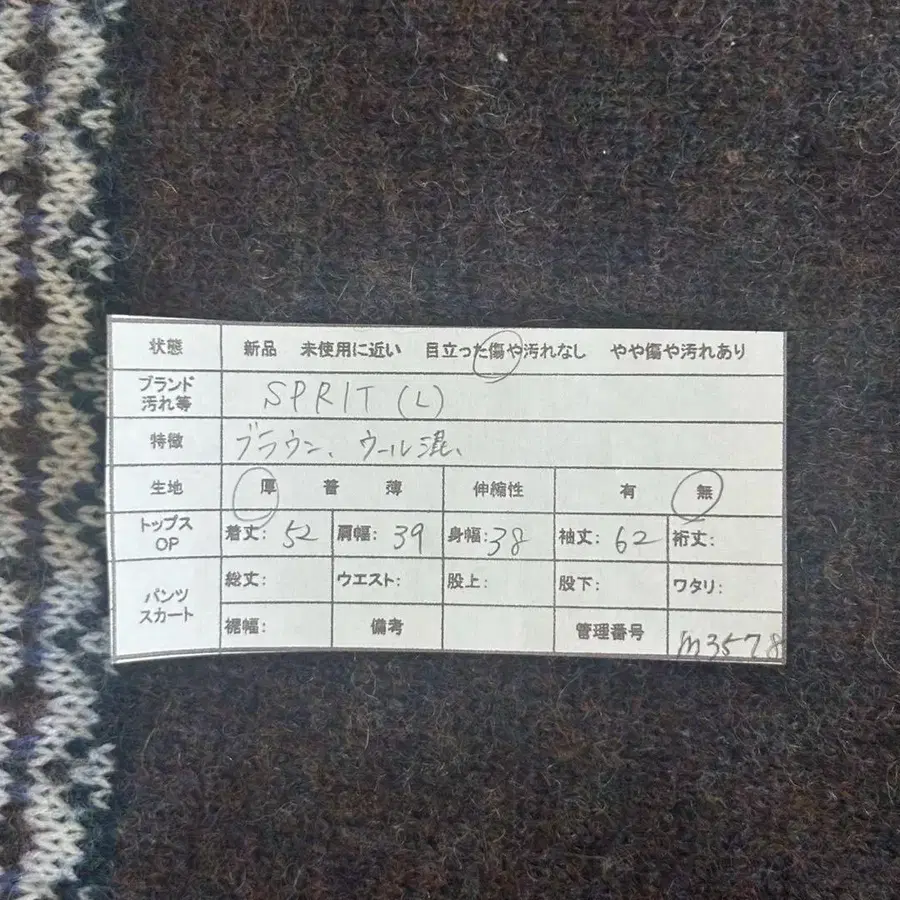 状態 新品 未使用に近い 目立った傷や汚れなし やや傷や汚れあり
ブランド
汚れ等 SPRIT (L)
特徴 ブラウン、ウール混、
生地 厚 普 薄 伸縮性 有 無
トップス
OP 着丈: 52 肩幅: 39 身幅: 38 袖丈: 62 裄丈:
パンツ
スカート
総丈: ウエスト: 股上: 股下: ワタリ:
裾幅: 備考 管理番号 m3578